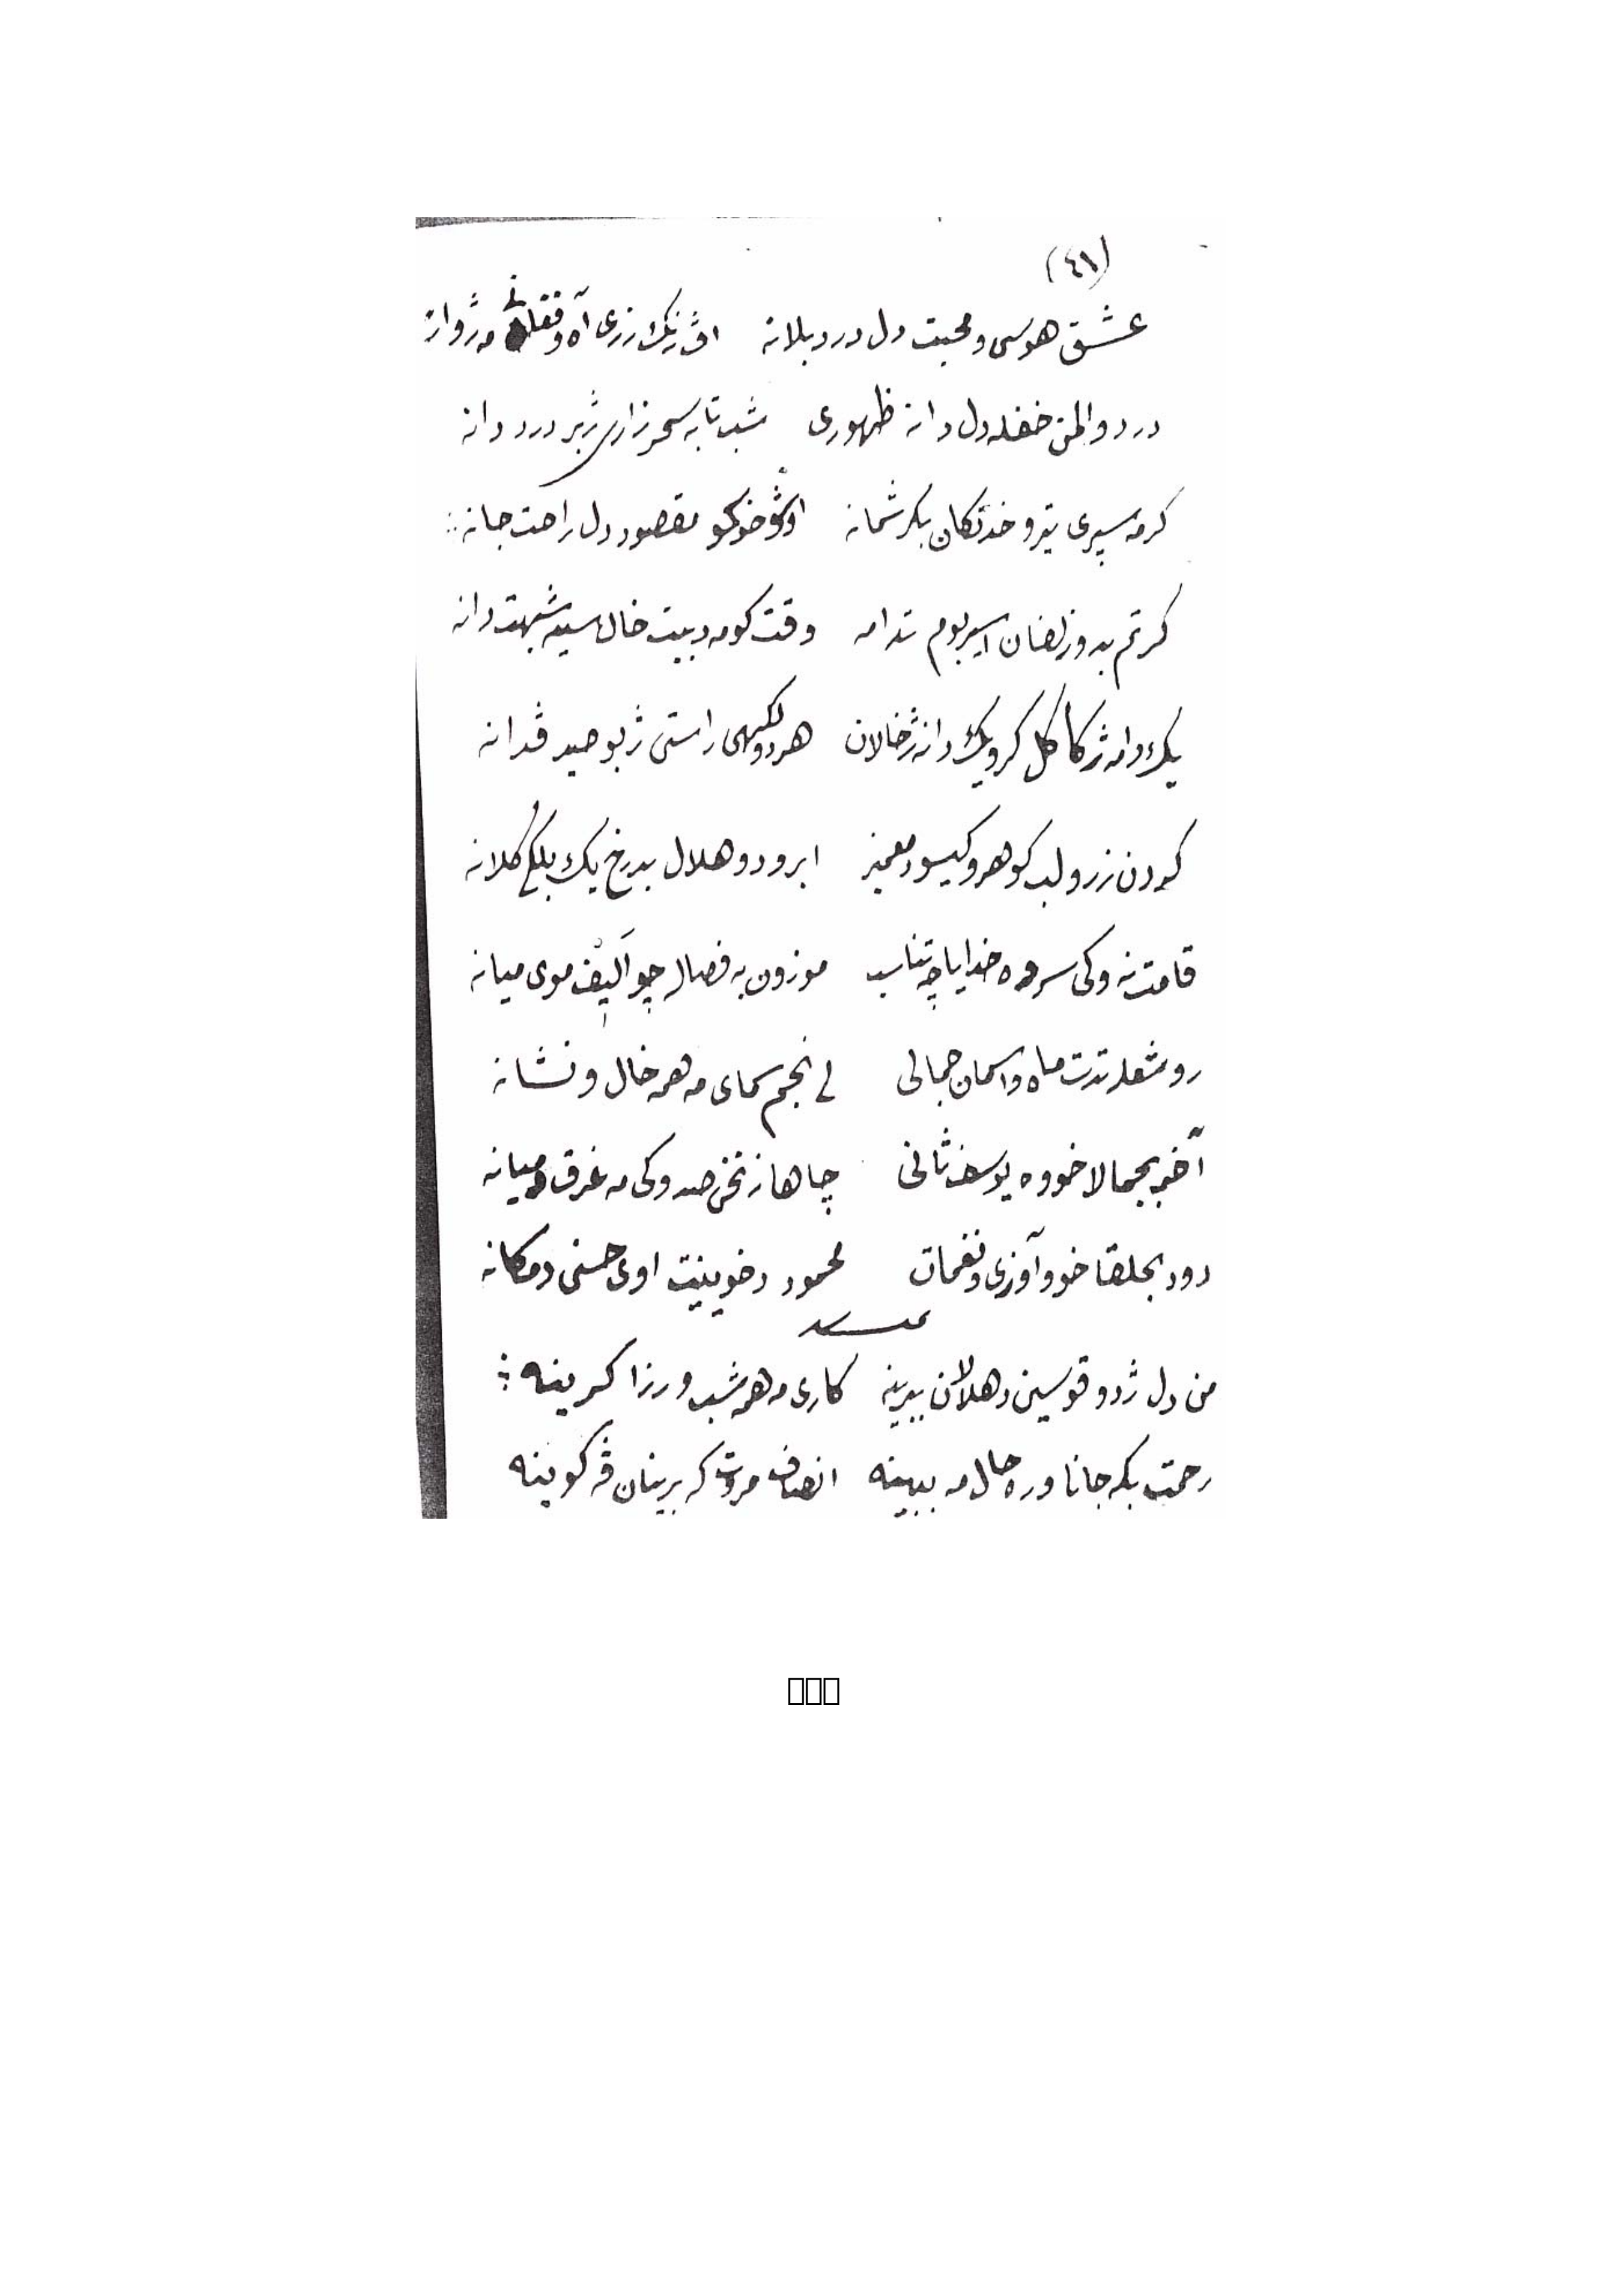 (٤١)
عشق هوسی و محبت دل درد بلانه اڤ رنگ زری آه و فغلانی مه ژوانه
درد و المن خفله دل دانه ظهوری شب تا به سحر زاری ژبر درد دانه
کرمه سپری تیر و خدنکان بکرشمانه او شوخ مقصود دل راحت جانه
کرتم بدو زلفان اسیر بوم تدامه وقت کومه دیت خال سیه شبهت دانه
یک دامه ژ کاکل کر و یک دانه ژ خالان هر دو راستی ژبو صید ڤدانه
کردن زر و لب کوهر و کیسو معنبر ابرو دو هلال بدرخ یک بلکی کلانه
قامت نه وکی سروه خدایا چه تناسب موزون به فصاله چو الیف موی میانه
رو مشعله تدت ماه و اسمان جمالی لی انجم سمای مه همه خال و نشانه
آخر بجمالا خو وه یوسف ثانی چاها زنخی صد وکی مه غرق میانه
دود بحلقا خو و آوازی و نغمات محمود دخوینیت اوی حسنی دمکانه
من دل ژ دو قوسین دهلالان ببرینه کاری مه همه شب و رزا کرینه
رحمت بکه جانا وره حال مه ببینه انصاف مروت که برینان ڤه کوینه